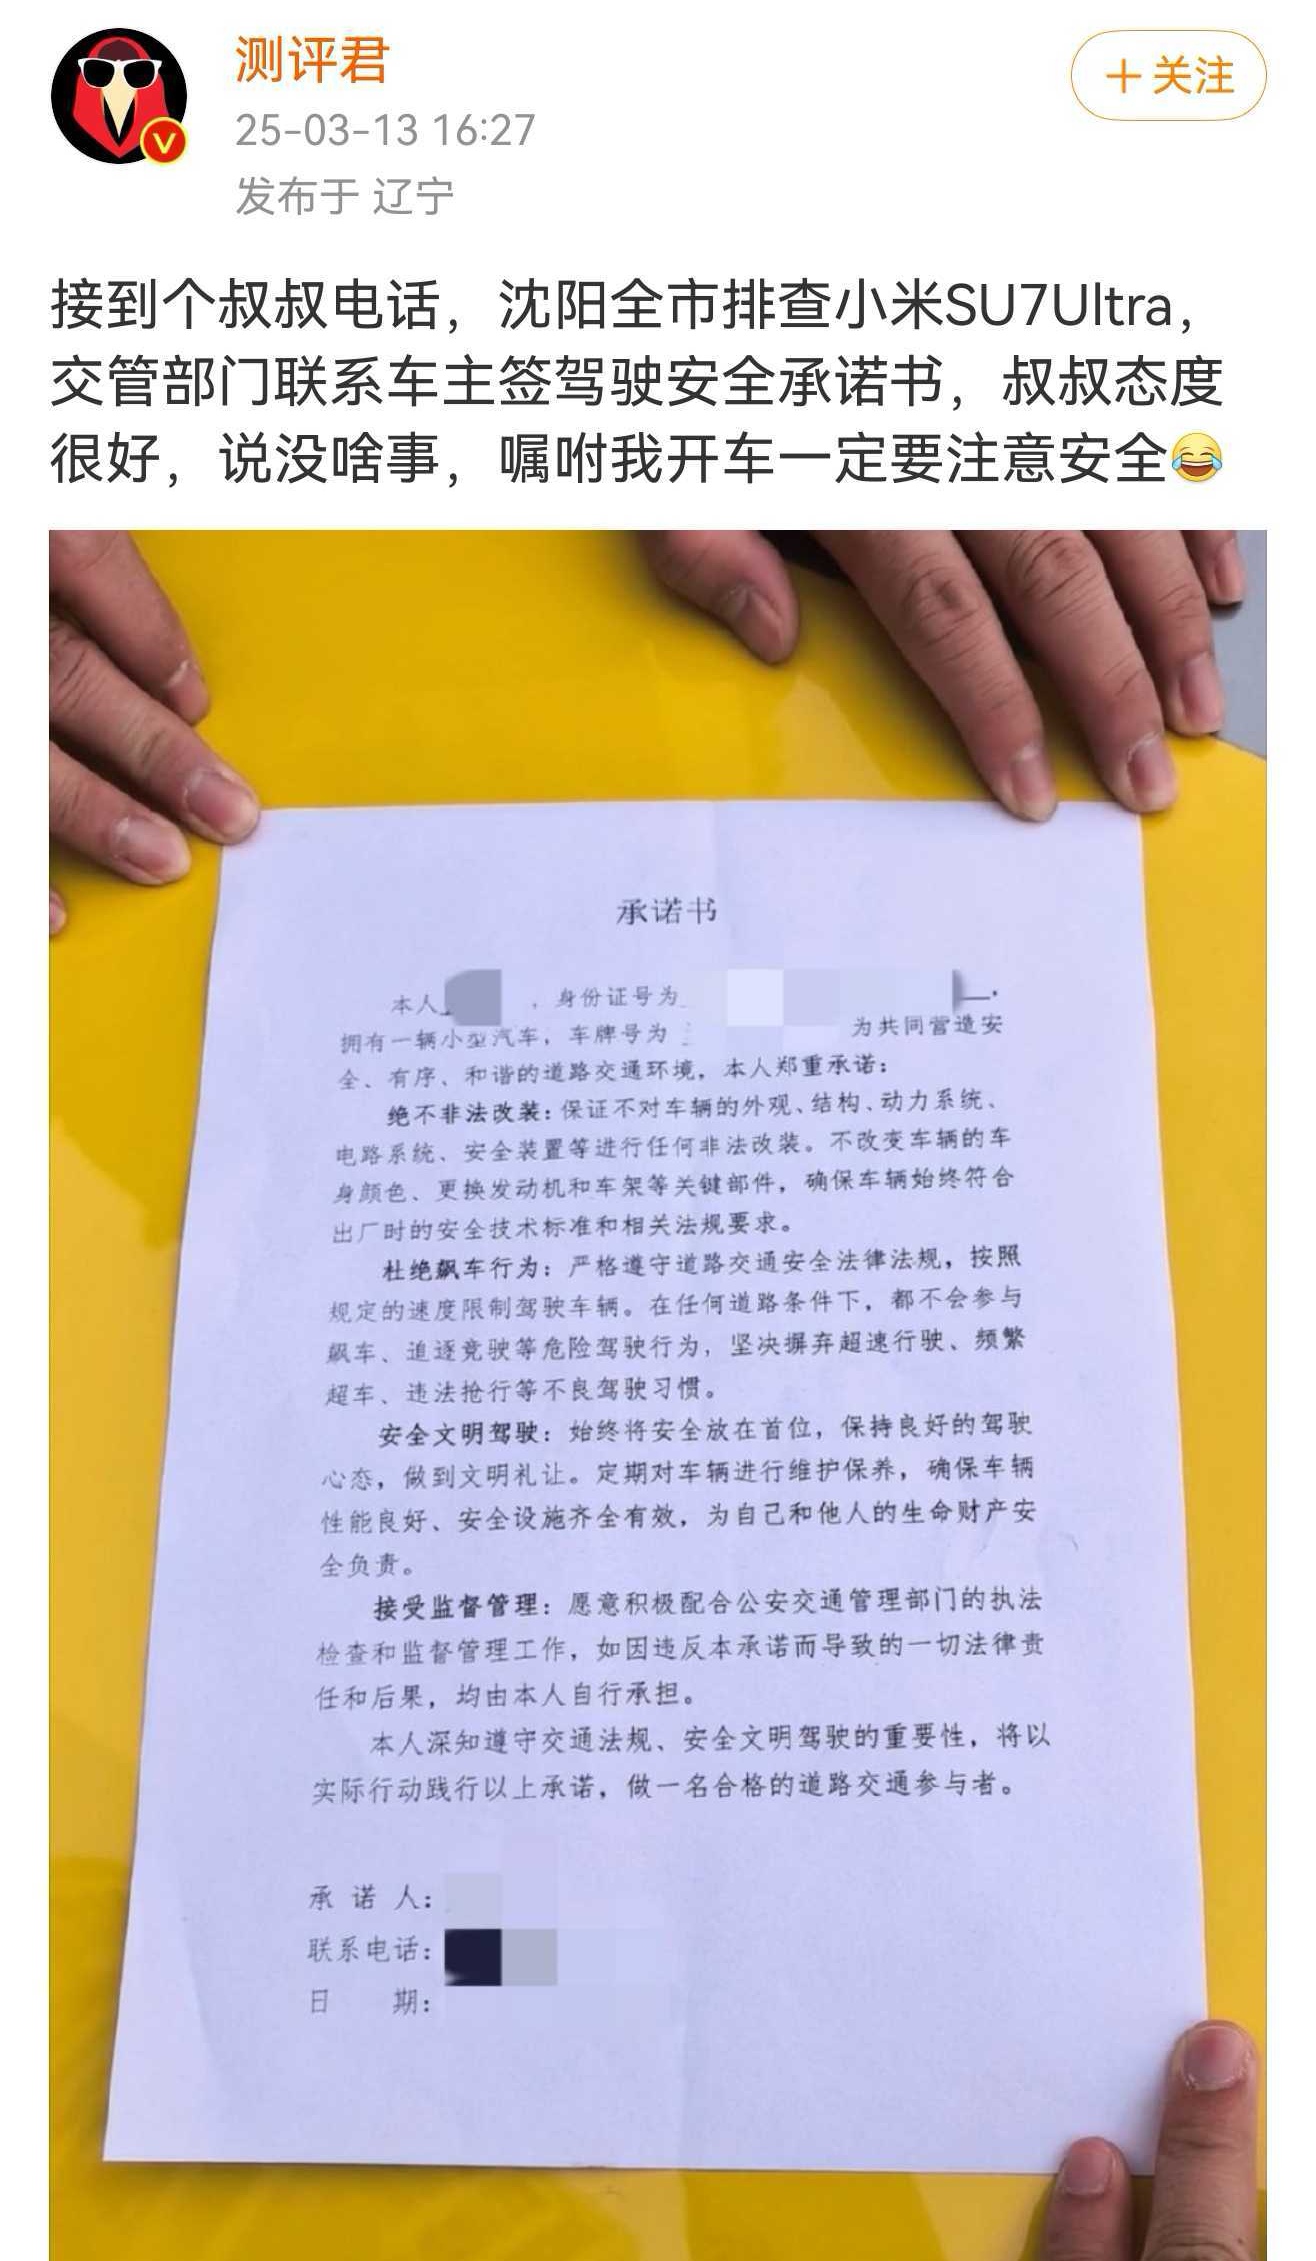 测评君
25-03-13 16:27
发布于 辽宁
+关注
接到个叔叔电话，沈阳全市排查小米SU7Ultra，
交管部门联系车主签驾驶安全承诺书，叔叔态度
很好，说没啥事，嘱咐我开车一定要注意安全😂
承诺书
本人，身份证号为
拥有一辆小型汽车，车牌号为 为共同营造安
全、有序、和谐的道路交通环境，本人郑重承诺：
绝不非法改装：保证不对车辆的外观、结构、动力系统、
电路系统、安全装置等进行任何非法改装。不改变车辆的车
身颜色、更换发动机和车架等关键部件，确保车辆始终符合
出厂时的安全技术标准和相关法规要求。
杜绝飙车行为：严格遵守道路交通安全法律法规，按照
规定的速度限制驾驶车辆。在任何道路条件下，都不会参与
飙车、追逐竞驶等危险驾驶行为，坚决摒弃超速行驶、频繁
超车、违法抢行等不良驾驶习惯。
安全文明驾驶：始终将安全放在首位，保持良好的驾驶
心态，做到文明礼让。定期对车辆进行维护保养，确保车辆
性能良好、安全设施齐全有效，为自己和他人的生命财产安
全负责。
接受监督管理：愿意积极配合公安交通管理部门的执法
检查和监督管理工作，如因违反本承诺而导致的一切法律责
任和后果，均由本人自行承担。
本人深知遵守交通法规、安全文明驾驶的重要性，将以
实际行动践行以上承诺，做一名合格的道路交通参与者。
承诺人：
联系电话：
日期：